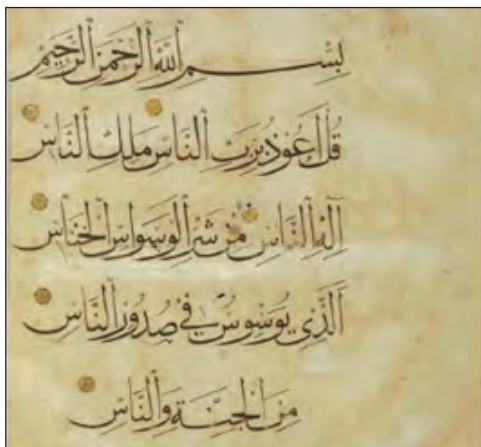 بِسْمِ ٱللَّهِ ٱلرَّحْمَنِ ٱلرَّحِيمِ
قُلْ أَعُوذُ بِرَبِّ ٱلنَّاسِ مَلِكِ ٱلنَّاسِ
إِلَهِ ٱلنَّاسِ مِن شَرِّ ٱلْوَسْوَاسِ ٱلْخَنَّاسِ
ٱلَّذِي يُوَسْوِسُ فِي صُدُورِ ٱلنَّاسِ
مِنَ ٱلْجِنَّةِ وَٱلنَّاسِ